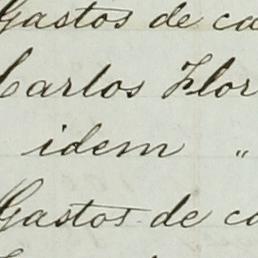 Gastos de ca
Carlos Flor
idem "
Gastos de ca